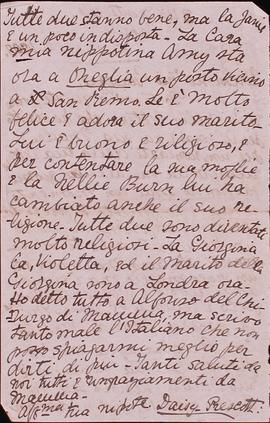 Tutte due stanno bene, ma la Janie
è un poco indisposta - La Cara
mia nippotina Amy sta
ora a Oneglia un posto vicino
a San Remo. Le è molto
felice e adora il suo marito -
Lui è buono e riligioso, e
per contentare la sua moglie
e la Nellie Burn lui ha
cambiato anche il suo re-
ligione - Tutte due sono diventati
molto religiosi - La Giorgina
Ca, Violetta, ed il marito della
Giorgina sono a Londra ora -
Ho detto tutto a Alfonso del Chi-
rurgo di Mamma, ma scrivo
tanto male l'Italiano che non
posso spiagarmi meglio per
dirti di piu - Tanti saluti da
noi tutti e ringragiamenti da
Mamma -
Aff ma tua nipote Daisy Prescott.